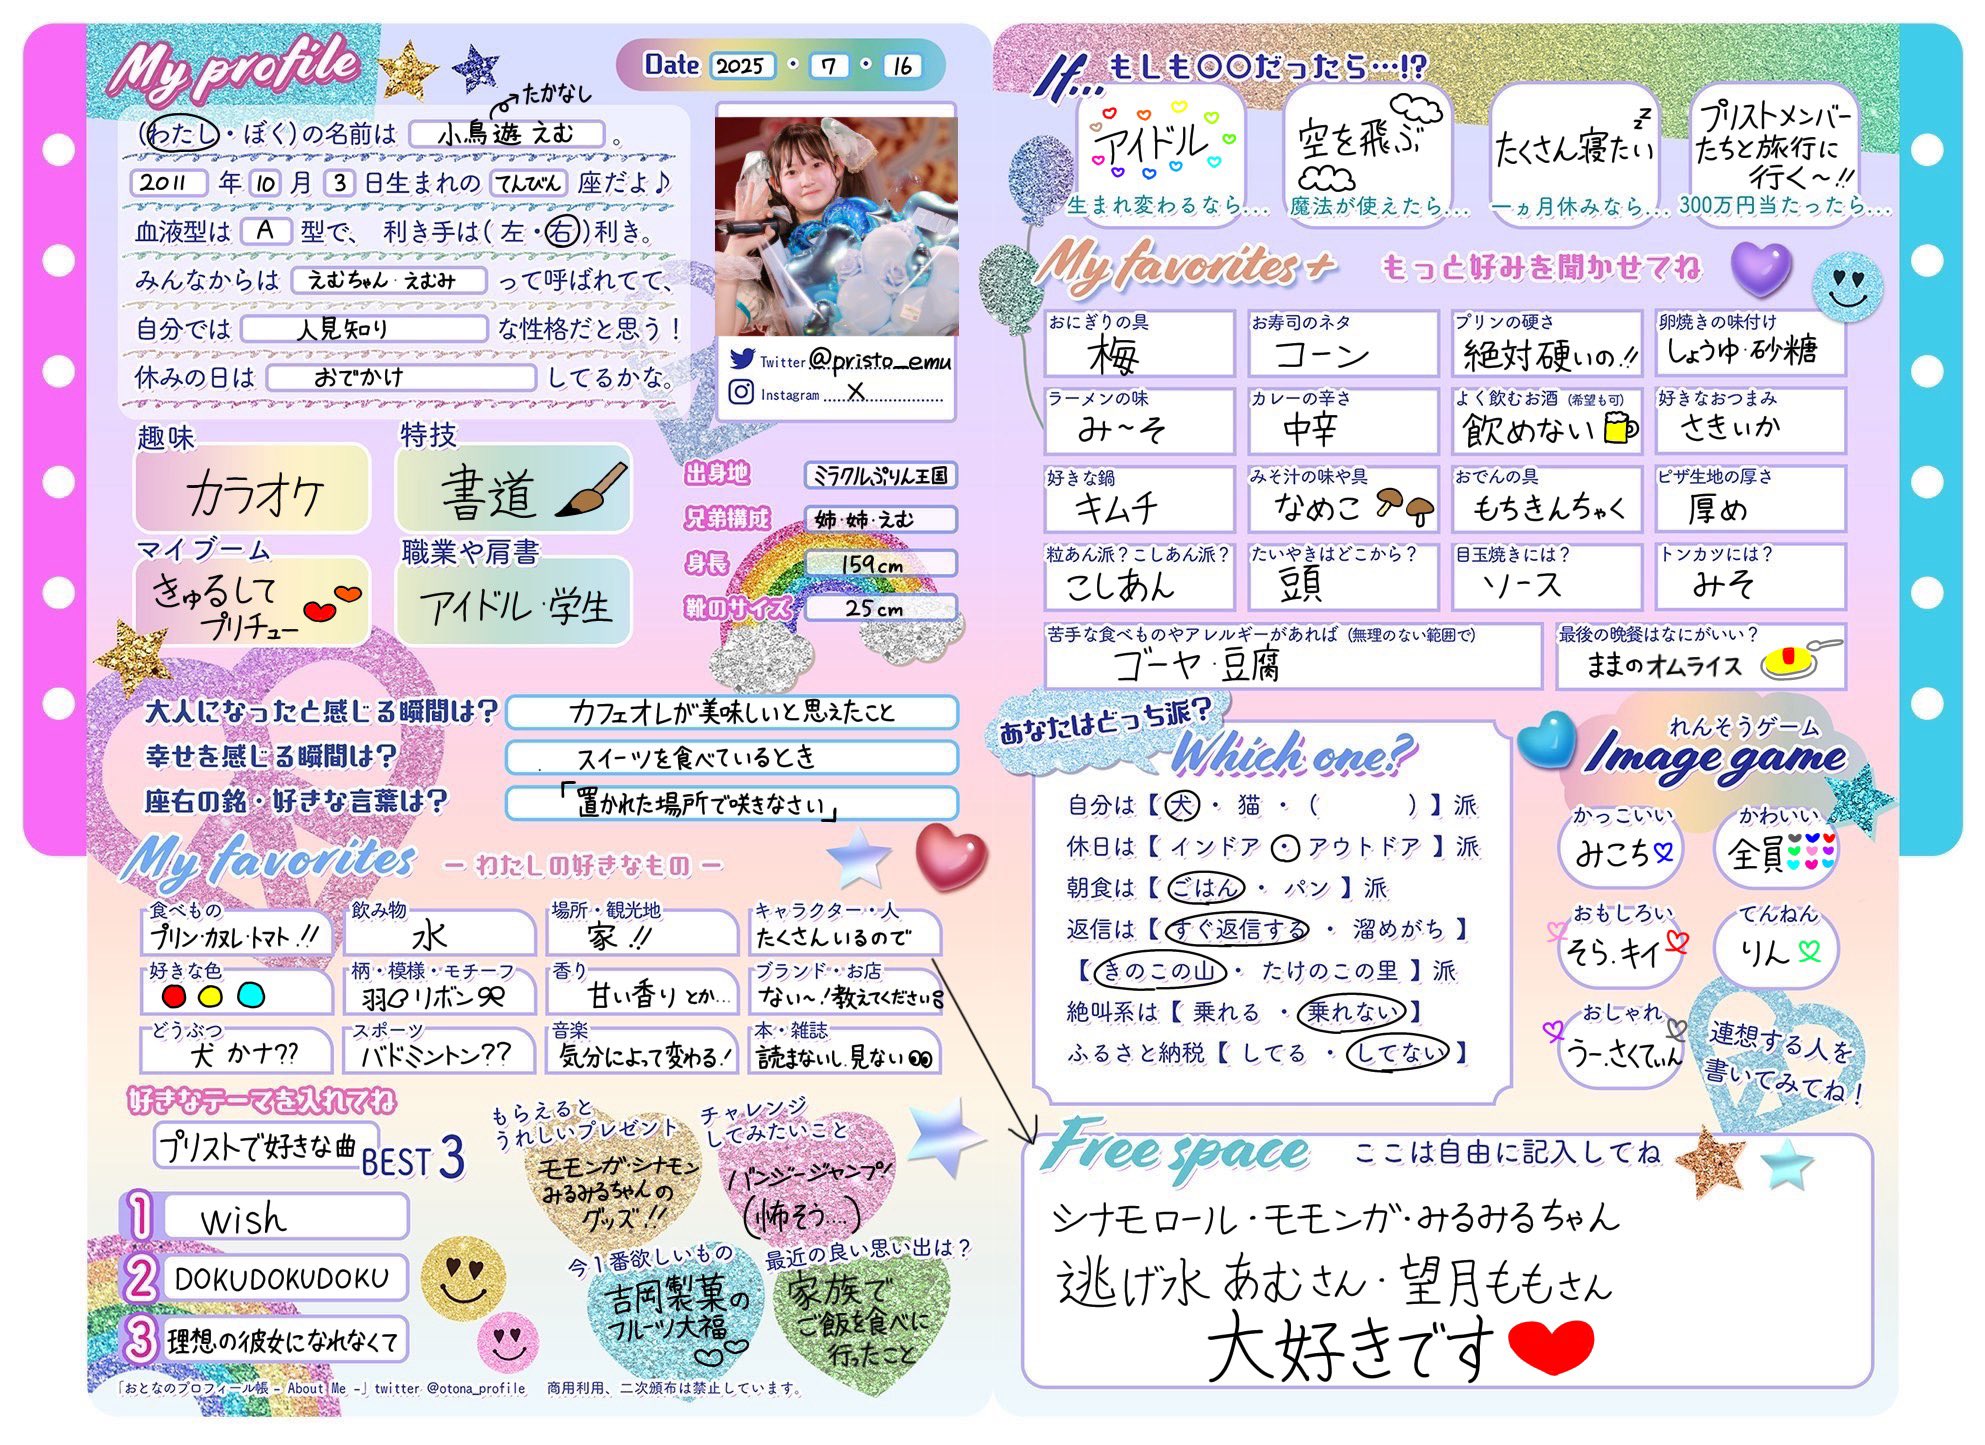 My profile
Date 2025・7・16
たかなし
(わたし・ぼく)の名前は 小鳥遊 えむ 。
2011 年 10 月 3 日生まれの てんびん 座だよ♪
血液型は A 型で、 利き手は(左・右)利き。
みんなからは えむちゃん・えむみ って呼ばれてて、
自分では 人見知り な性格だと思う！
休みの日は おでかけ してるかな。
Twitter @pristo_emu
Instagram X
趣味
カラオケ
特技
書道
マイブーム
きゅるして
プリチュー
職業や肩書
アイドル・学生
出身地 ミラクルぷりん王国
兄弟構成 姉・姉・えむ
身長 159cm
靴のサイズ 25cm
大人になったと感じる瞬間は？ カフェオレが美味しいと思えたこと
幸せを感じる瞬間は？ スイーツを食べているとき
座右の銘・好きな言葉は？ 「置かれた場所で咲きなさい」
My favorites －わたしの好きなもの－
食べもの
プリン・カヌレ・トマト!!
飲み物
水
場所・観光地
家!!
キャラクター・人
たくさんいるので
好きな色
柄・模様・モチーフ
羽 リボン
香り
甘い香りとか…
ブランド・お店
ない〜！教えてください
どうぶつ
犬 かナ??
スポーツ
バドミントン??
音楽
気分によって変わる！
本・雑誌
読まないし見ない
好きなテーマを入れてね
プリストで好きな曲 BEST 3
1 wish
2 DOKUDOKUDOKU
3 理想の彼女になれなくて
もらえると
うれしいプレゼント
モモンガ・シナモン
みるみるちゃんの
グッズ!!
チャレンジ
してみたいこと
バンジージャンプ!
(怖そう....)
今１番欲しいもの
吉岡製菓の
フルーツ大福
最近の良い思い出は？
家族で
ご飯を食べに
行ったこと
「おとなのプロフィール帳 - About Me -」twitter @otona_profile 商用利用、二次頒布は禁止しています。
If... もしも〇〇だったら…!?
アイドル
生まれ変わるなら...
空を飛ぶ
魔法が使えたら...
たくさん寝たい
zz
一ヵ月休みなら...
プリストメンバー
たちと旅行に
行く〜!!
300万円当たったら...
My favorites+ もっと好みを聞かせてね
おにぎりの具
梅
お寿司のネタ
コーン
プリンの硬さ
絶対硬いの!!
卵焼きの味付け
しょうゆ・砂糖
ラーメンの味
み〜そ
カレーの辛さ
中辛
よく飲むお酒 (希望も可)
飲めない
好きなおつまみ
さきいか
好きな鍋
キムチ
みそ汁の味や具
なめこ
おでんの具
もちきんちゃく
ピザ生地の厚さ
厚め
粒あん派？こしあん派？
こしあん
たいやきはどこから？
頭
目玉焼きには？
ソース
トンカツには？
みそ
苦手な食べものやアレルギーがあれば (無理のない範囲で)
ゴーヤ・豆腐
最後の晩餐はなにがいい？
ままのオムライス
あなたはどっち派？
Which one?
自分は【 犬 ・ 猫 ・ ( ) 】派
休日は【 インドア ・ アウトドア 】派
朝食は【 ごはん ・ パン 】派
返信は【 すぐ返信する ・ 溜めがち 】
【 きのこの山 ・ たけのこの里 】派
絶叫系は【 乗れる ・ 乗れない 】
ふるさと納税【 してる ・ してない 】
れんそうゲーム
Image game
かっこいい
みこち
かわいい
全員
おもしろい
そら.キイ
てんねん
りん
おしゃれ
うー.さくてぃん
連想する人を
書いてみてね！
Free space ここは自由に記入してね
シナモロール・モモンガ・みるみるちゃん
逃げ水 あむさん・望月ももさん
大好きです